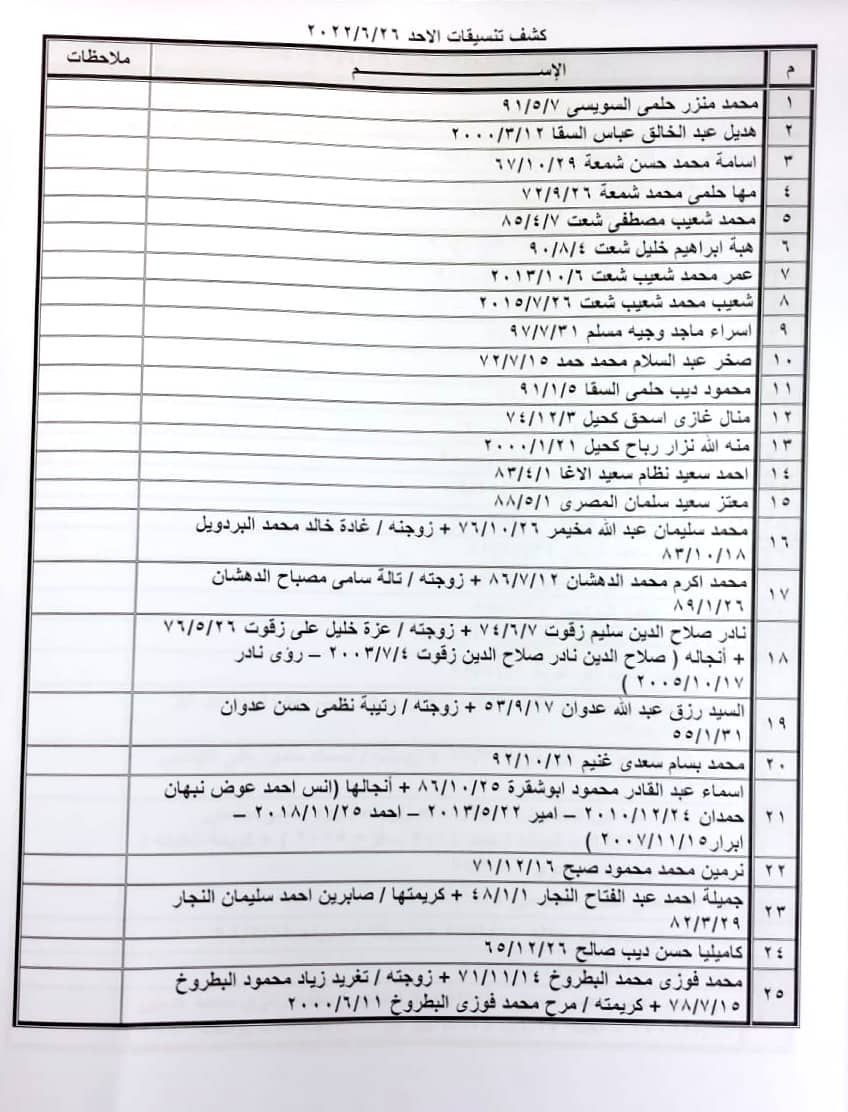 كشف تنسيقات الاحد ٢٠٢٢/٦/٢٦
م الإســـــــــــــــم ملاحظات
١ محمد منزر حلمى السويسى ٩١/٥/٧
٢ هديل عبد الخالق عباس السقا ٢٠٠٠/٣/١٢
٣ اسامة محمد حسن شمعة ٦٧/١٠/٢٩
٤ مها حلمى محمد شمعة ٧٢/٩/٢٦
٥ محمد شعيب مصطفى شعت ٨٥/٤/٧
٦ هبة ابراهيم خليل شعت ٩٠/٨/٤
٧ عمر محمد شعيب شعت ٢٠١٣/١٠/٦
٨ شعيب محمد شعيب شعت ٢٠١٥/٧/٢٦
٩ اسراء ماجد وجيه مسلم ٩٧/٧/٣١
١٠ صخر عبد السلام محمد حمد ٧٢/٧/١٥
١١ محمود ديب حلمى السقا ٩١/١/٥
١٢ منال غازى اسحق كحيل ٧٤/١٢/٣
١٣ منه الله نزار رباح كحيل ٢٠٠٠/١/٢١
١٤ احمد سعيد نظام سعيد الاغا ٨٣/٤/١
١٥ معتز سعيد سلمان المصرى ٨٨/٥/١
١٦ محمد سليمان عبد الله مخيمر ٧٦/١٠/٢٦ + زوجته / غادة خالد محمد البردويل
٨٣/١٠/١٨
١٧ محمد اكرم محمد الدهشان ٨٦/٧/١٢ + زوجته / تالة سامى مصباح الدهشان
٨٩/١/٢٦
١٨ نادر صلاح الدين سليم زقوت ٧٤/٦/٧ + زوجته / عزة خليل على زقوت ٧٦/٥/٢٦
+ أنجاله ( صلاح الدين نادر صلاح الدين زقوت ٢٠٠٣/٧/٤ – رؤى نادر
٢٠٠٥/١٠/١٧ )
١٩ السيد رزق عبد الله عدوان ٥٣/٩/١٧ + زوجته / رتيبة نظمى حسن عدوان
٥٥/١/٣١
٢٠ محمد بسام سعدى غنيم ٩٢/١٠/٢١
٢١ اسماء عبد القادر محمود ابوشقرة ٨٦/١٠/٢٥ + أنجالها (انس احمد عوض نبهان
حمدان ٢٠١٠/١٢/٢٤ – امير ٢٠١٣/٥/٢٢ – احمد ٢٠١٨/١١/٢٥ –
ابرار٢٠٠٧/١١/١٥ )
٢٢ نرمين محمد محمود صبح ٧١/١٢/١٦
٢٣ جميلة احمد عبد الفتاح النجار ٤٨/١/١ + كريمتها / صابرين احمد سليمان النجار
٨٢/٣/٢٩
٢٤ كاميليا حسن ديب صالح ٦٥/١٢/٢٦
٢٥ محمد فوزى محمد البطروخ ٧١/١١/١٤ + زوجته / تغريد زياد محمود البطروخ
٧٨/٧/١٥ + كريمته / مرح محمد فوزى البطروخ ٢٠٠٠/٦/١١